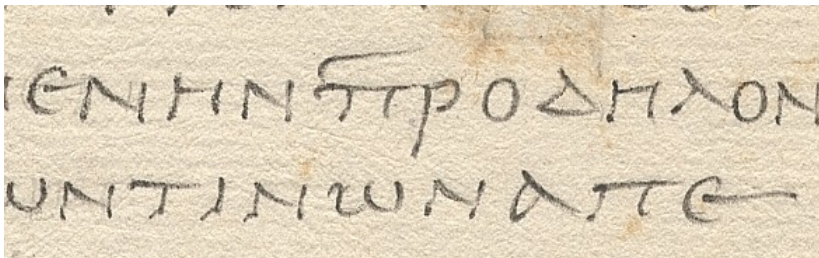 ΕΝΗΝΠΡΟΔΗΛΟΝ
ΥΝΤΙΝΩΝΑΠΕ